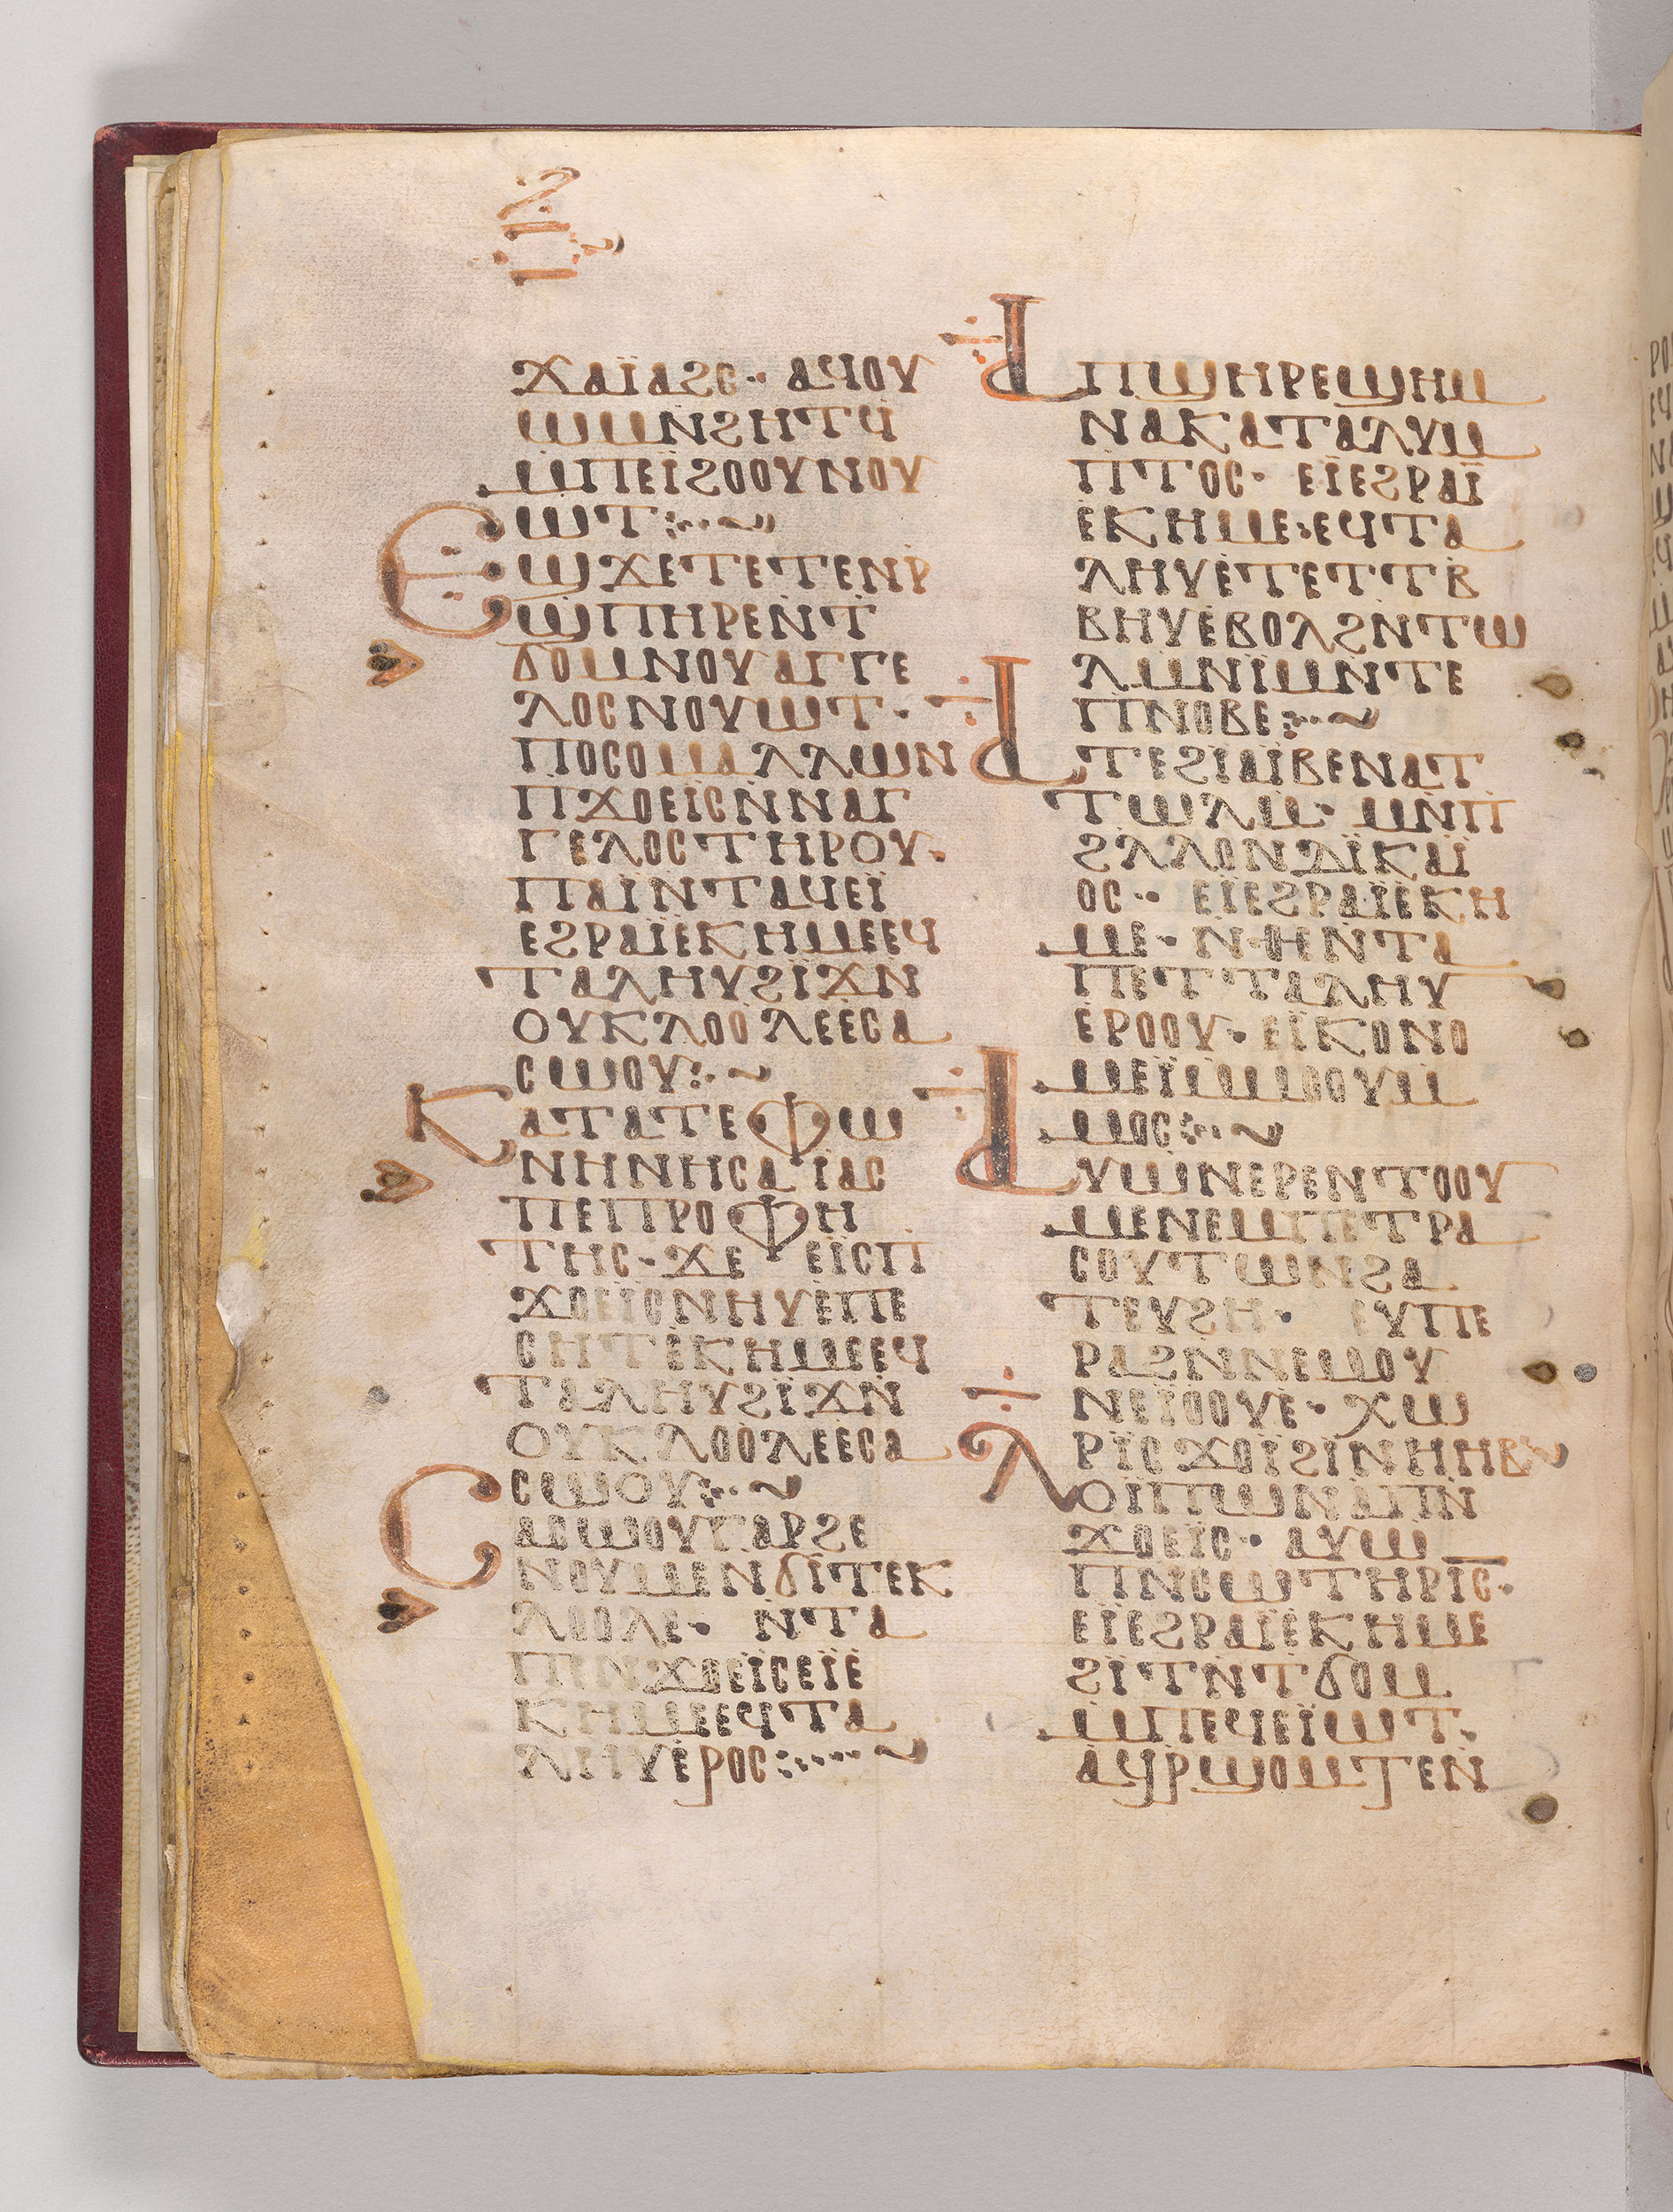 ϪⲀⲒ̈ⲀϨⲤ· ⲀϤⲞⲨ
ⲰⲘⲚϨⲎⲦϤ
ⲘⲠⲈⲒ̈ϨⲞⲞⲨⲚⲞⲨ
ⲰⲦ:··~
ⲈϢϪⲈⲦⲈⲦⲈⲚⲢ
ϢⲠⲎⲢⲈⲚⲦ
ϬⲞⲘⲚⲞⲨⲀⲄⲄⲈ
ⲖⲞⲤⲚⲞⲨⲰⲦ·
ⲠⲞⲤⲞⲘⲀⲖⲖⲰⲚ
ⲠϪⲞⲈⲒⲤⲚ̀ⲚⲀⲄ
ⲄⲈⲖⲞⲤⲦⲎⲢⲞⲨ·
ⲠⲀⲒ̈ⲚⲦⲀϤⲈⲒ̈
ⲈϨⲢⲀⲒ̈ⲈⲔⲎⲘⲈⲈϤ
ⲦⲀⲖⲎⲨϨⲒ̈ϪⲚ
ⲞⲨⲔⲖⲞⲞⲖⲈⲈ̀ⲤⲀ
ⲤⲰⲞⲨ:·~
ⲔⲀⲦⲀⲦⲈⲪⲰ
ⲚⲎⲚⲎⲤⲀⲒ̈ⲀⲤ
ⲠⲈⲠⲢⲞⲪⲎ
ⲦⲎⲤ·ϪⲈ ⲈⲒ̈ⲤⲠ
ϪⲞⲈⲒ̈ⲤⲚⲎⲨⲈ̀ⲠⲈ
ⲤⲎⲦⲈ̀ⲔⲎⲘⲈⲈϤ
ⲦⲀⲖⲎⲨϨⲒ̈ϪⲚ̀
ⲞⲨⲔⲖⲞⲞⲖⲈⲈ̀ⲤⲀ
ⲤⲰⲞⲨ:··~
ⲤⲀⲤⲰⲞⲨⲄⲀⲢϨⲈ
ⲚⲞⲨⲘⲈⲚϬⲒ̈ⲦⲈⲔ
ⲖⲞⲞⲖⲈ· Ⲛ̀ⲦⲀ
ⲠⲈⲚϪⲞⲈⲒ̈ⲤⲈⲒ̈Ⲉ̀
ⲔⲎⲘⲈⲈϤⲦⲀ
ⲖⲎⲨⲈ̀ⲢⲞⲤ:····~
ⲀⲠϢⲎⲢⲈϢⲎⲘ
ⲚⲀⲔⲀⲦⲀⲖⲨⲘ
ⲠⲦⲞⲤ· ⲈⲒ̈ⲈϨⲢⲀⲒ̈
ⲈⲔⲎⲘⲈ·ⲈϤⲦⲀ
ⲖⲎⲨⲈ̀ⲦⲈⲦⲦⲂ
ⲂⲎⲨⲈ̀ⲂⲞⲖϨⲚ̀ⲦⲰ
ⲖⲘⲚⲒⲘⲚ̀ⲦⲈ
ⲠⲚⲞⲂⲈ:··~
ⲀⲦⲈϨⲒⲀⲒ̈ⲂⲈⲚⲀⲦ
ⲦⲰⲖⲘ· ⲘⲚ̀Ⲡ
ϨⲖⲖⲞⲚⲆⲒ̈ⲔⲀⲒ̈
ⲞⲤ·· ⲈⲒ̈ⲈϨⲢⲀⲒ̈ⲈⲔⲎ
ⲘⲈ· ⲚⲐⲈⲚ̀ⲦⲀ
ⲠⲈⲦⲦⲀⲖⲎⲨ
Ⲉ̀ⲢⲞⲞⲨ·ⲈⲒ̈ⲔⲞⲚⲞ
ⲘⲈⲒ̈ⲘⲘⲞⲞⲨⲘ
ⲘⲞⲤ:··~
ⲀⲨⲰⲚⲈⲢⲈⲚⲦⲞⲞⲨ
ⲘⲈⲚⲈⲘⲠⲈⲦⲢⲀ
ⲤⲞⲨⲦⲰⲚϨⲀ
ⲦⲈⲨϨⲎ· ⲈⲨⲠⲈ
ⲢⲀϨⲚⲚⲈⲘⲞⲨ
ⲚⲈⲒ̈ⲞⲞⲨⲈ̀· ⲬⲰ
ⲢⲒ̈ⲤϪⲞⲒ̈ϨⲒ̈ⲚⲎⲎⲂ
ⲖⲞⲒ̈ⲠⲰⲚⲀⲠⲚ
ϪⲞⲈⲒ̈Ⲥ· ⲀⲨⲰ
ⲠⲚⲤⲰⲦⲎⲢⲒ̅Ⲥ̅·
ⲈⲒ̈ⲈϨⲢⲀⲒ̈Ⲉ̀ⲔⲎⲘⲈ
ϨⲒ̈ⲦⲚ̀ⲦϬⲞⲘ
ⲘⲠⲈϤⲈⲒ̈ⲰⲦ·
ⲀϤⲢϢⲞⲘⲦⲈⲚ̀